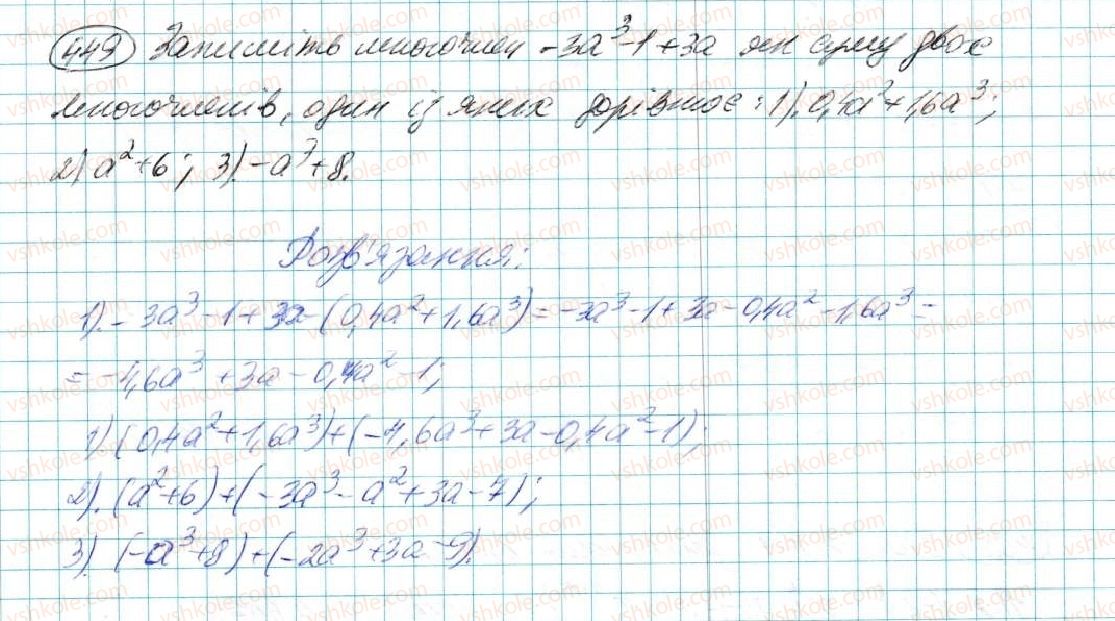 449 Запишіть многочлен -3a³-1+3a як суму двох
многочленів, один із яких дорівнює: 1). 0,4a²+1,6a³;
2) a²+6; 3). -a³+8.
Розв'язання:
1). -3a³-1+3a-(0,4a²+1,6a³)=-3a³-1+3a-0,4a²-1,6a³=
=-4,6a³+3a-0,4a²-1;
1). (0,4a²+1,6a³)+(-4,6a³+3a-0,4a²-1);
2). (a²+6)+(-3a³-a²+3a-7);
3). (-a³+8)+(-2a³+3a-9).
vshkole.com